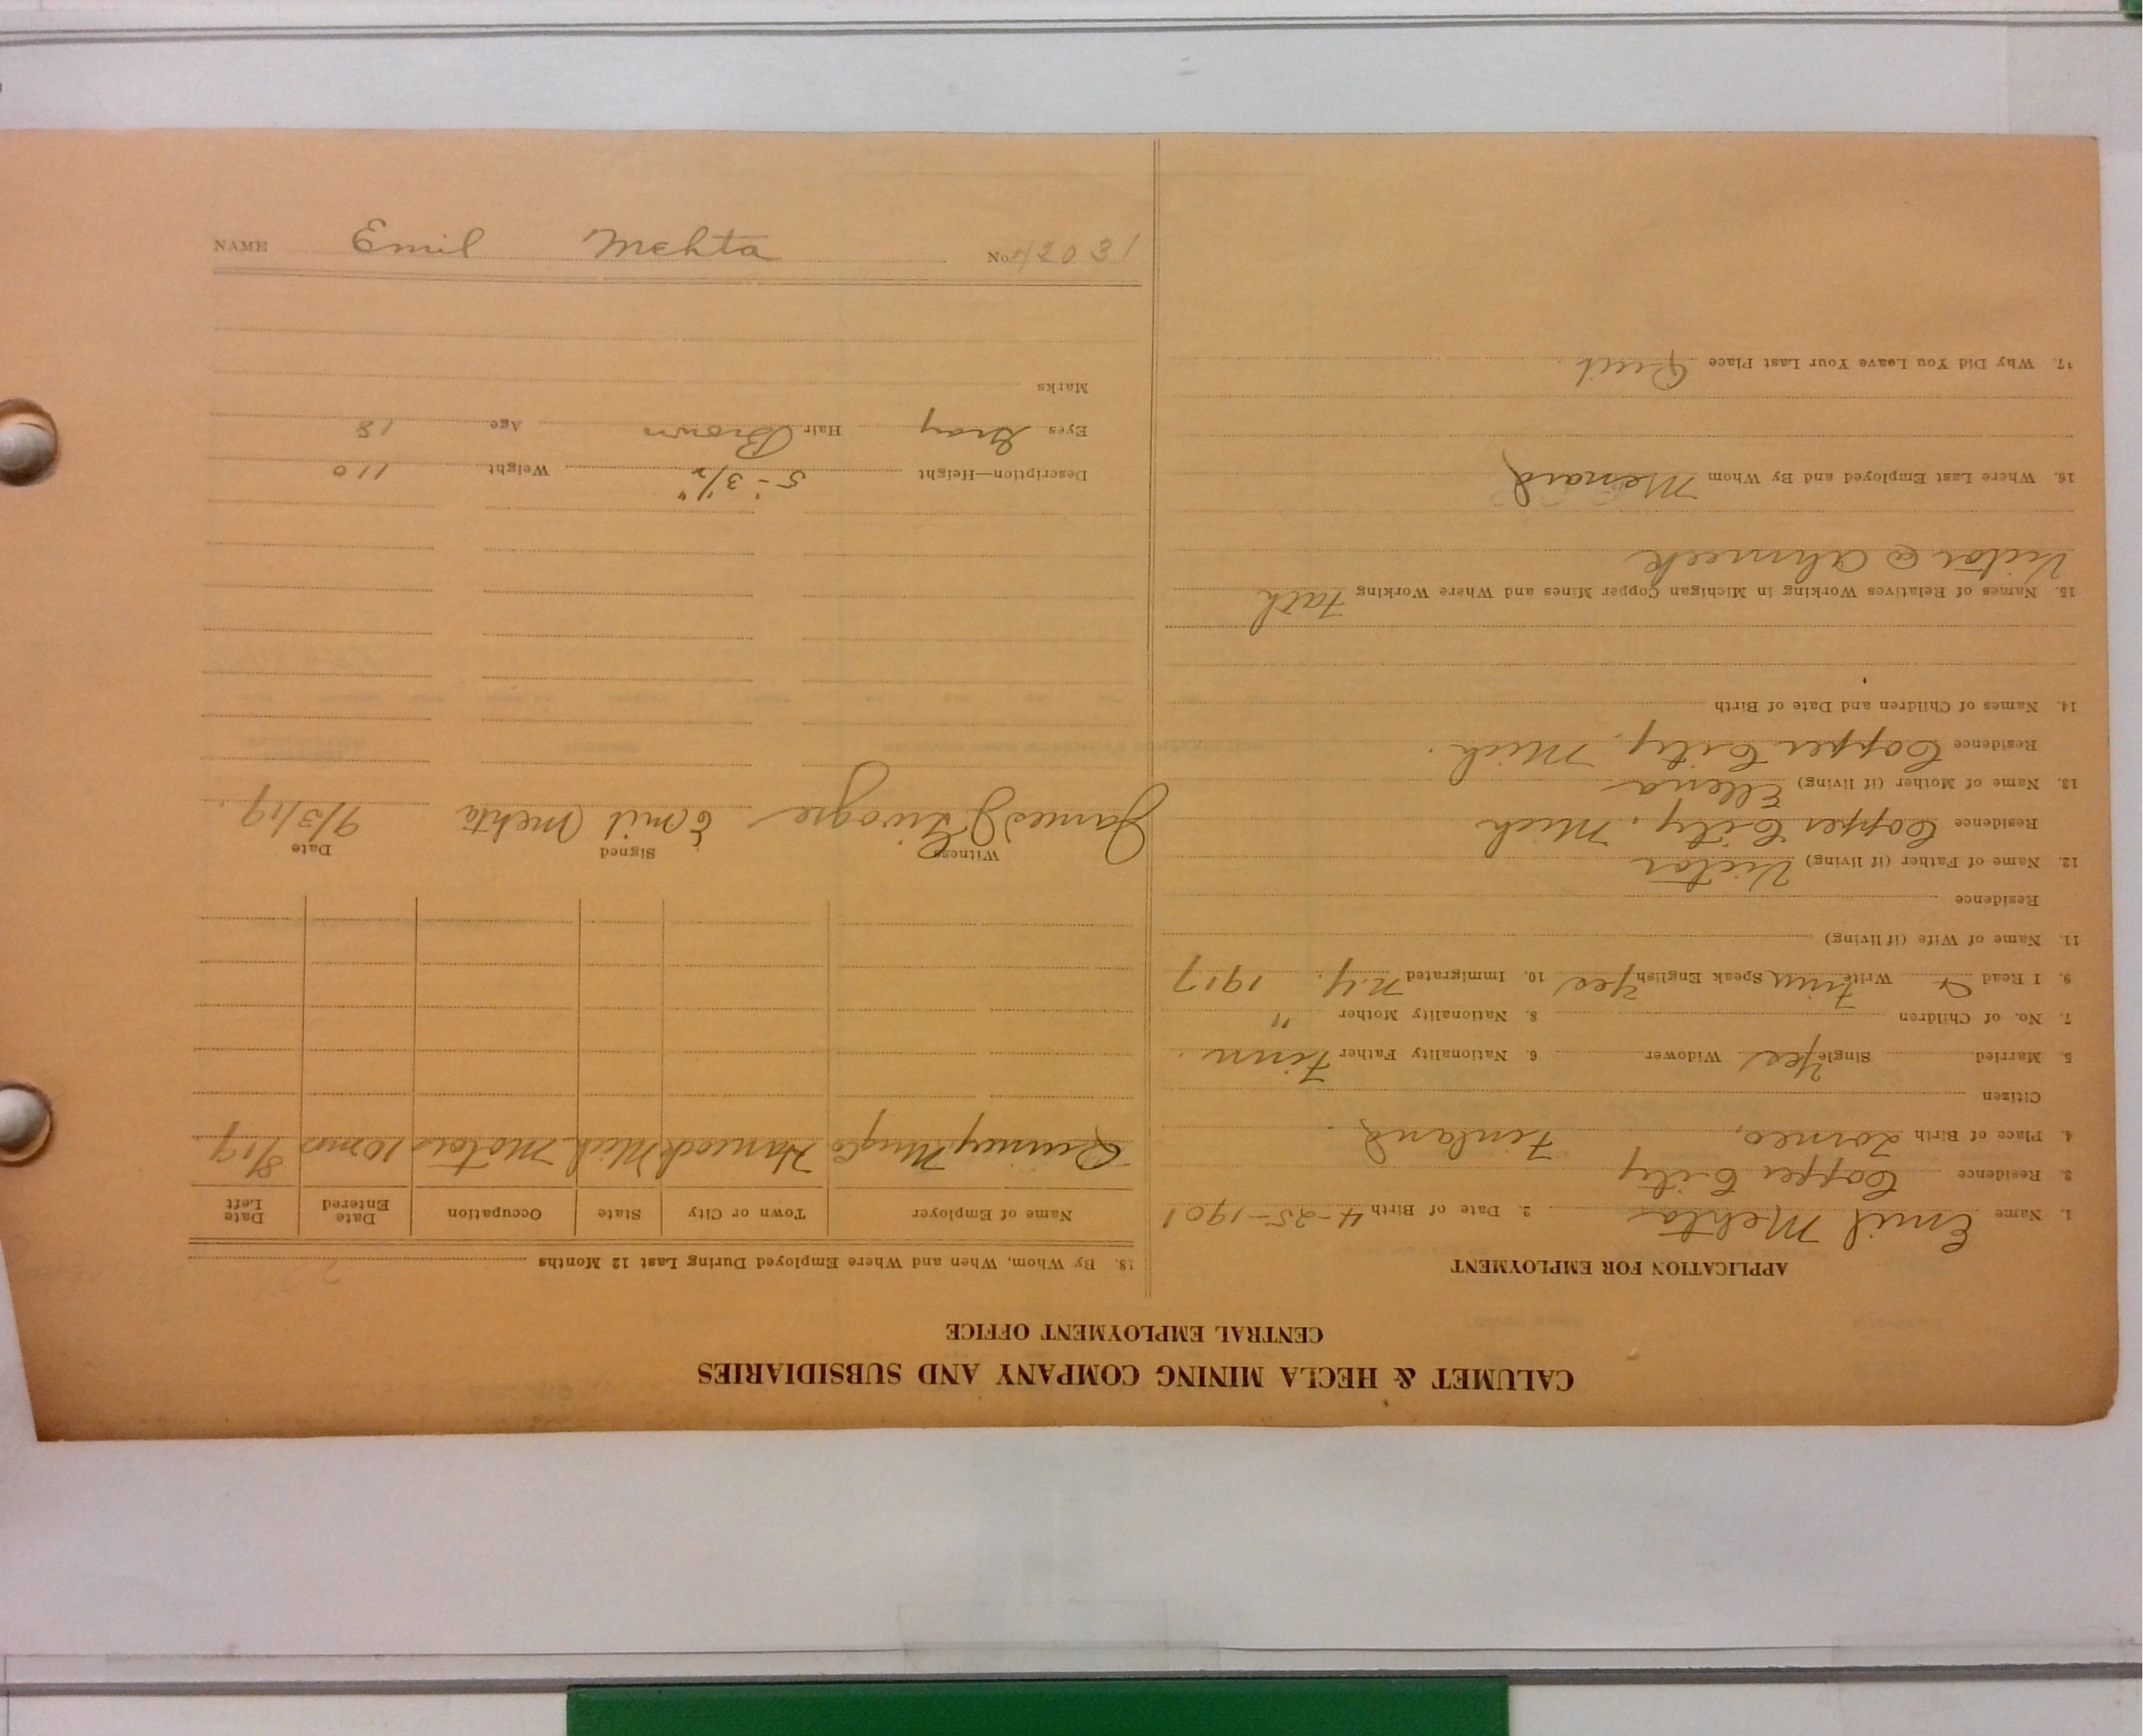 CALUMET & HECLA MINING COMPANY AND SUBSIDIARIES
CENTRAL EMPLOYMENT OFFICE
APPLICATION FOR EMPLOYMENT
1. Name Emil Mehta 2. Date of Birth 4-25-1901
3. Residence Copper City
4. Place of Birth Torneo, Finland.
Citizen
5. Married Single Yes Widower 6. Nationality Father Finn.
7. No. of Children 8. Nationality Mother "
9. I Read & Write Finn Speak English Yes 10. Immigrated N.Y. 1917
11. Name of Wife (if living)
Residence
12. Name of Father (if living) Victor
Residence Copper City, Mich
13. Name of Mother (if living) Ellena
Residence Copper City, Mich.
14. Names of Children and Date of Birth
15. Names of Relatives Working in Michigan Copper Mines and Where Working Fath
Victor @ Ahmeek
16. Where Last Employed and By Whom Mesnard
17. Why Did You Leave Your Last Place Quit.
18. By Whom, When and Where Employed During Last 12 Months
Name of Employer Town or City State Occupation Date Entered Date Left
Quincy Mng Co Hancock Mich Motors 10 mos 8/19
Witness Signed Date
James J Emil Mehta 9/3/19.
Description—Height 5'-3½" Weight 110
Eyes Gray Hair Brown Age 18
Marks
NAME Emil Mehta No. 42031